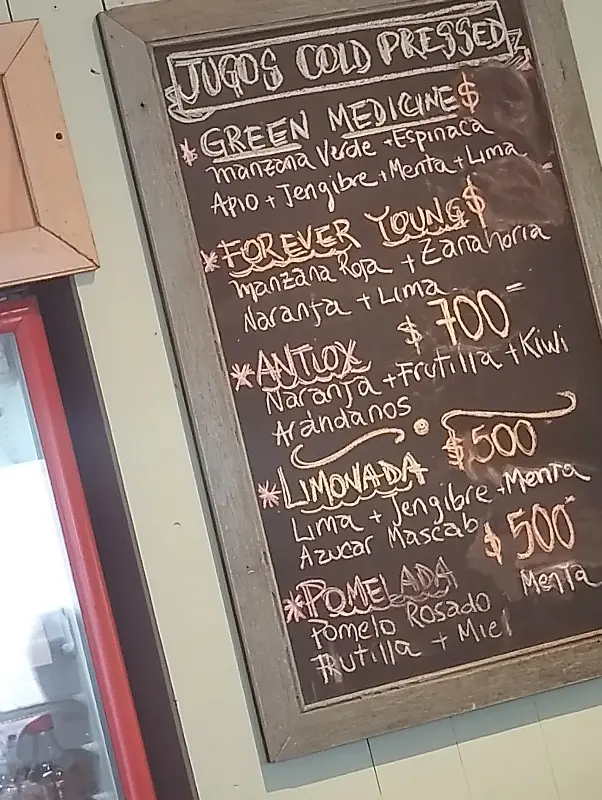 JUGOS COLD PRESSED
* GREEN MEDICINE $
Manzana Verde + Espinaca
Apio + Jengibre + Menta + Lima
* FOREVER YOUNG $
Manzana Roja + Zanahoria
Naranja + Lima
$ 700
* ANTIOX
Naranja + Frutilla + Kiwi
Arándanos
$ 500
* LIMONADA
Lima + Jengibre + Menta
Azucar Mascab
$ 500
* POMELADA
Pomelo Rosado
Menta
Frutilla + Miel